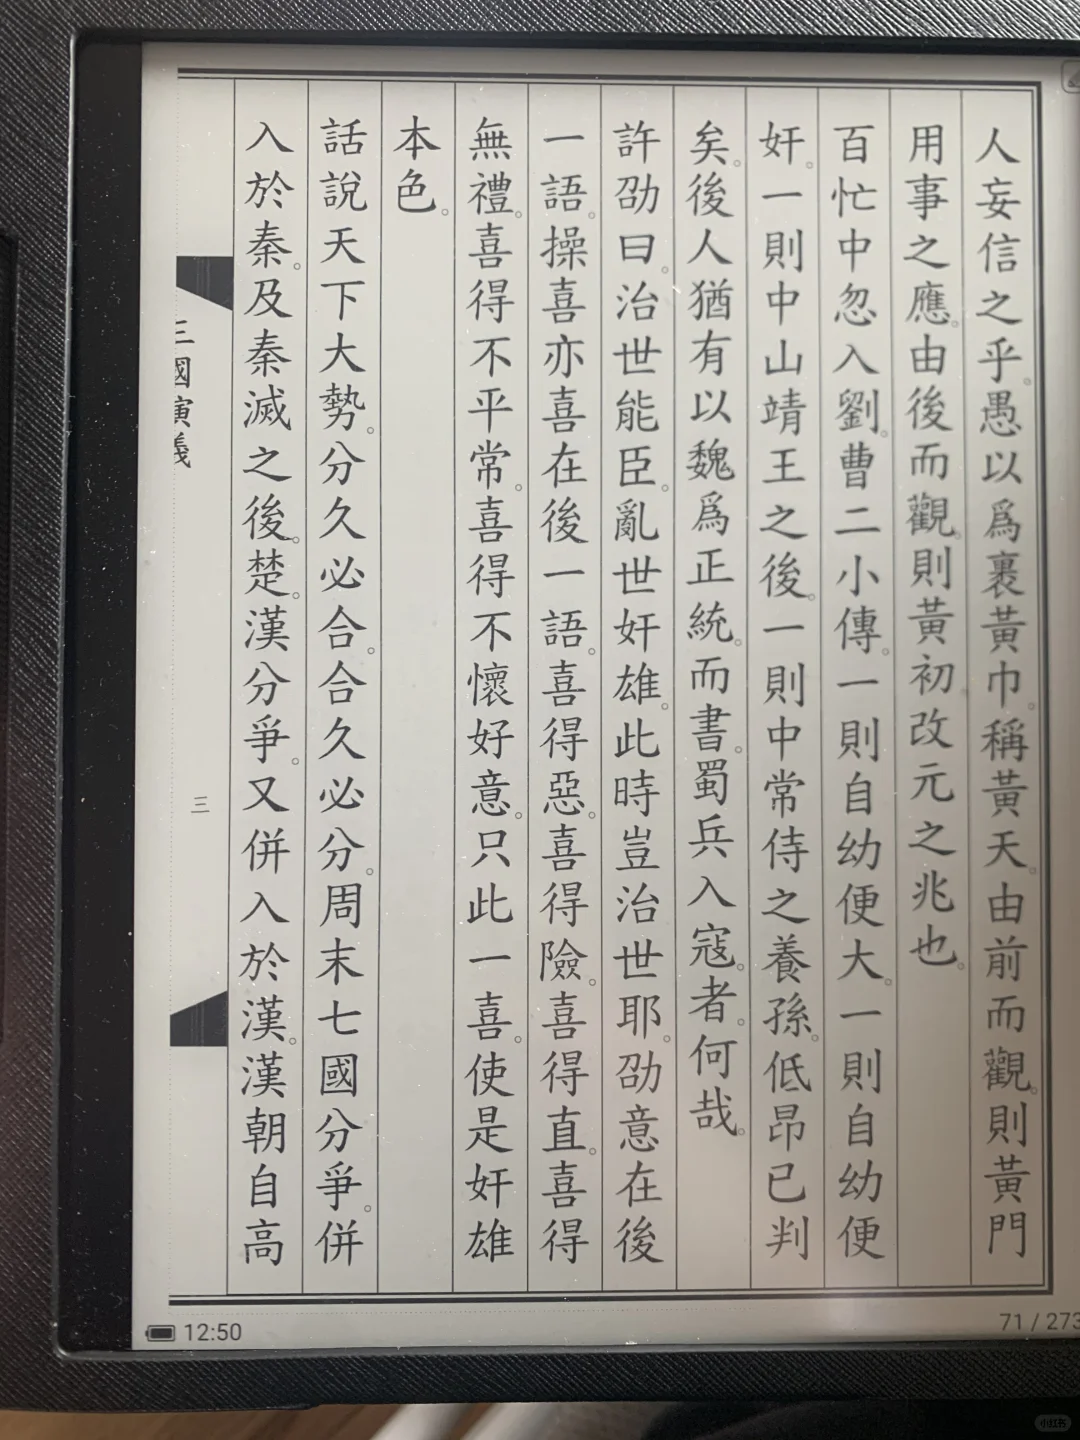 人妄信之乎。愚以爲裹黃巾。稱黃天。由前而觀。則黃門
用事之應。由後而觀。則黃初改元之兆也。
百忙中忽入劉。曹二小傳。一則自幼便大。一則自幼便
奸。一則中山靖王之後。一則中常侍之養孫。低昂已判
矣。後人猶有以魏爲正統。而書。蜀兵入寇。者。何哉。
許劭曰。治世能臣。亂世奸雄。此時豈治世耶。劭意在後
一語。操喜亦喜在後一語。喜得惡。喜得險。喜得直。喜得
無禮。喜得不平常。喜得不懷好意。只此一喜。使是奸雄
本色。
話說天下大勢。分久必合。合久必分。周末七國分爭。併
入於秦。及秦滅之後。楚。漢分爭。又併入於漢。漢朝自高
三國演義
三
12:50
71 / 273
小红书